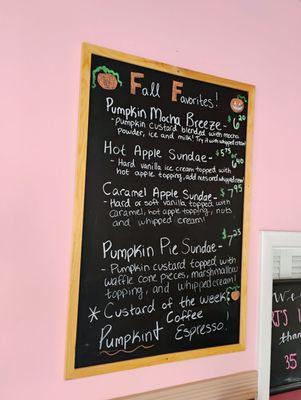 Fall Favorites!
Pumpkin Mocha Breeze - $6.20
- Pumpkin custard blended with mocha
powder, ice and milk! Try it with whipped cream!
Hot Apple Sundae - $5.75 or 6.40
- Hard vanilla ice cream topped with
hot apple topping, add nuts and whipped cream!
Caramel Apple Sundae - $7.95
- Hard or soft vanilla topped with
caramel, hot apple topping, nuts
and whipped cream!
Pumpkin Pie Sundae - $7.25
- Pumpkin custard topped with
waffle cone pieces, marshmallow
topping, and whipped cream!
* Custard of the week!
Coffee
Pumpkin + Espresso!